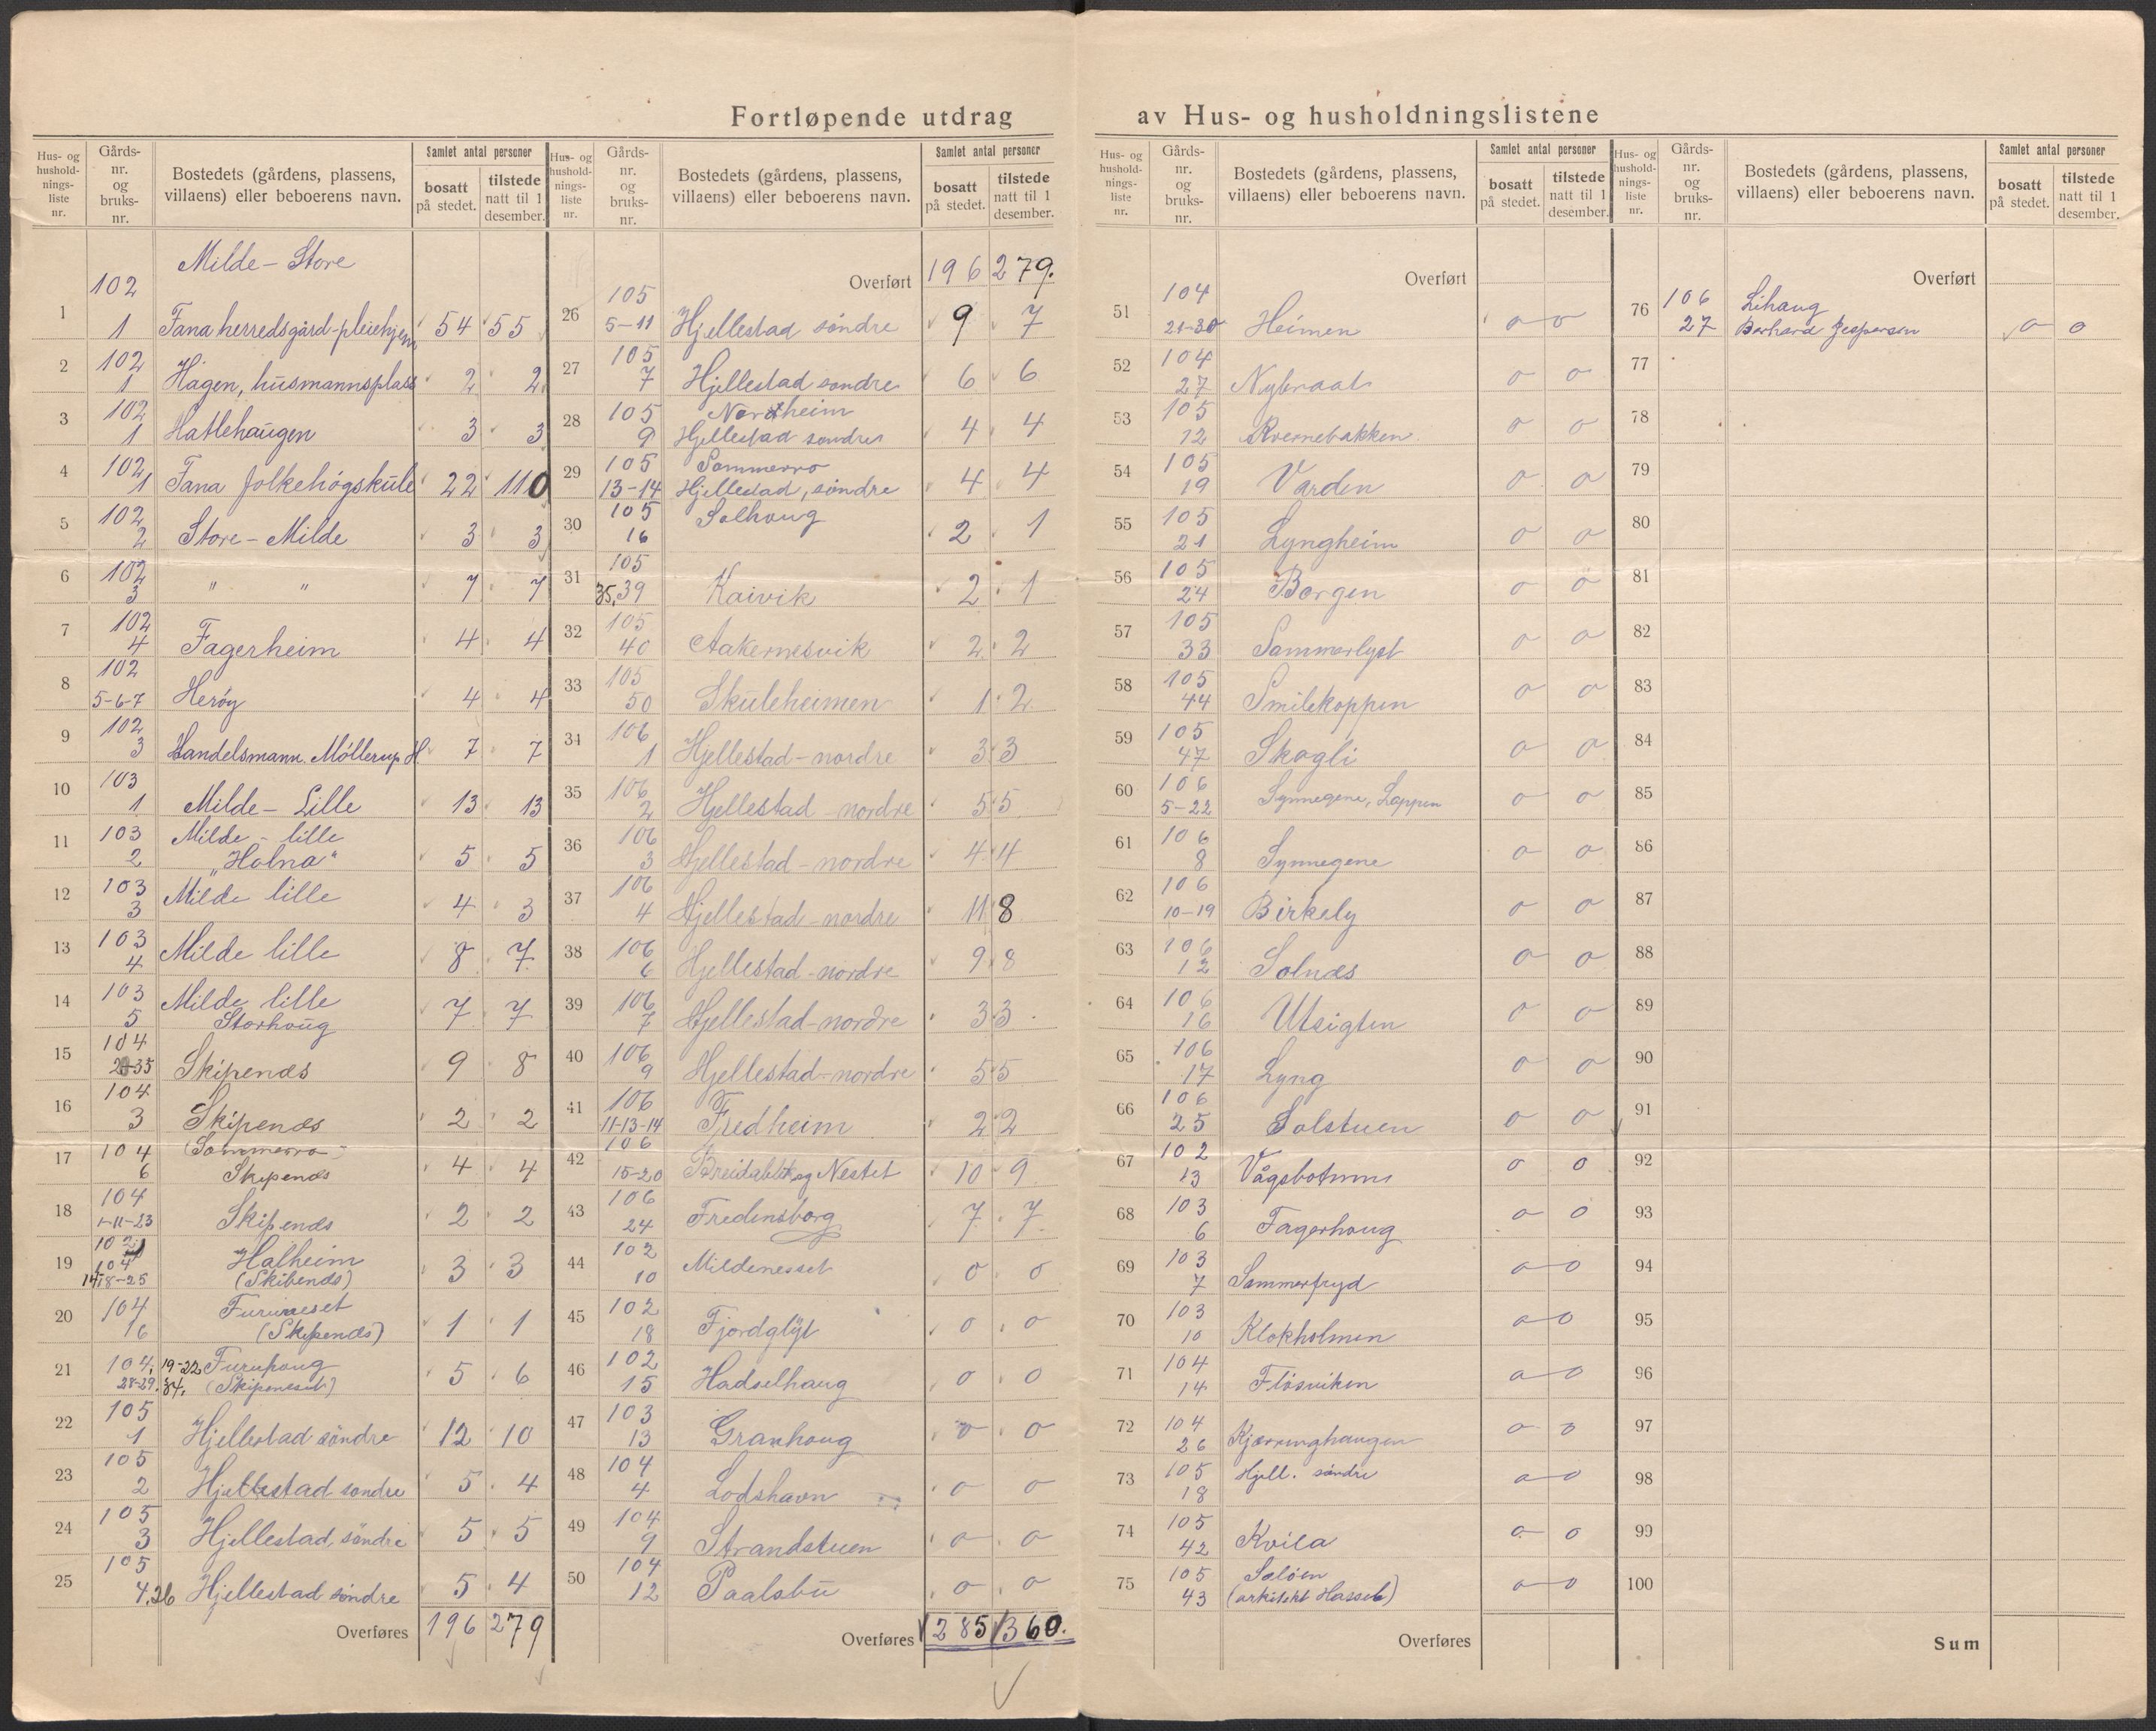 Fortløpende utdrag av Hus- og husholdningslistene
Hus- og hushold-nings-liste nr. Gårds-nr. og bruks-nr. Bostedets (gårdens, plassens, villaens) eller beboerens navn. Samlet antal personer bosatt på stedet. tilstede natt til 1 desember.
Milde - Store
1 102 1 Fana herredsgård-pleiehjem 54 55
2 102 1 Hagen, husmannsplass 2 2
3 102 1 Hatlehaugen 3 3
4 102 1 Fana folkehøgskule 22 110
5 102 2 Store - Milde 3 3
6 102 3 " " 7 7
7 102 4 Fagerheim 4 4
8 102 5-6-7 Herøy 4 4
9 102 3 Handelsmann Møllerup H. 7 7
10 103 1 Milde - Lille 13 13
11 103 2 Milde - lille "Holna" 5 5
12 103 3 Milde lille 4 3
13 103 4 Milde lille 8 7
14 103 5 Milde lille Storhoug 7 7
15 104 2-35 Skipenes 9 8
16 104 3 Skipenes 2 2
17 104 6 (Sommerro - Skipenes 4 4
18 104 1-11-23 Skipenes 2 2
19 102 104 14-18-25 Halheim (Skibenes) 3 3
20 104 16 Furuneset (Skipenes) 1 1
21 104, 19-22 28-29. 34. Furuhoug (Skipeneset) 5 6
22 105 1 Hjellestad søndre 12 10
23 105 2 Hjellestad søndre 5 4
24 105 3 Hjellestad, søndre 5 5
25 105 4.26 Hjellestad søndre 5 4
Overføres 196 279
Hus- og hushold-nings-liste nr. Gårds-nr. og bruks-nr. Bostedets (gårdens, plassens, villaens) eller beboerens navn. Samlet antal personer bosatt på stedet. tilstede natt til 1 desember.
Overført 196 279.
26 105 5-11 Hjellestad søndre 9 7
27 105 7 Hjellestad søndre 6 6
28 105 9 Nordheim Hjellestad søndre 4 4
29 105 13-14 Sommerro Hjellestad, søndre 4 4
30 105 16 Solhoug 2 1
31 105 35,39 Kaivik 2 1
32 105 40 Aakernesvik 2 2
33 105 50 Skuleheimen 1 2
34 106 1 Hjellestad - nordre 3 3
35 106 2 Hjellestad nordre 5 5
36 106 3 Hjellestad - nordre 4 4
37 106 4 Hjellestad - nordre 11 8
38 106 6 Hjellestad - nordre 9 8
39 106 7 Hjellestad - nordre 3 3
40 106 9 Hjellestad - nordre 5 5
41 106 11-13-14 Fredheim 2 2
42 106 15-20 Breidablik og Nestet 10 9
43 106 24 Fredensborg 7 7
44 102 10 Mildenesset 0 0
45 102 18 Fjordglyt 0 0
46 102 15 Hadselhaug 0 0
47 103 13 Granhoug 0 0
48 104 4 Lodshavn 0 0
49 104 9 Strandstuen 0 0
50 104 12 Paalsbu 0 0
Overføres 285 360.
Hus- og hushold-nings-liste nr. Gårds-nr. og bruks-nr. Bostedets (gårdens, plassens, villaens) eller beboerens navn. Samlet antal personer bosatt på stedet. tilstede natt til 1 desember.
Overført
51 104 21-30 Heimen 0 0
52 104 27 Nybraat 0 0
53 105 12 Kvernebakken 0 0
54 105 19 Varden 0 0
55 105 21 Lyngheim 0 0
56 105 24 Borgen 0 0
57 105 33 Sommerlyst 0 0
58 105 44 Smilekoppen 0 0
59 105 47 Skogli 0 0
60 106 5-22 Synnegene, Loppen 0 0
61 106 8 Synnegene 0 0
62 106 10-19 Birkely 0 0
63 106 12 Solnes 0 0
64 106 16 Utsigten 0 0
65 106 17 Lyng 0 0
66 106 25 Solstuen 0 0
67 102 13 Vågsbotnen 0 0
68 103 6 Fagerhoug 0 0
69 103 7 Sommerfryd 0 0
70 103 10 Klokholmen 0 0
71 104 14 Fløsviken 0 0
72 104 26 Kjærringhaugen 0 0
73 105 18 Hjell. søndre 0 0
74 105 42 Kvila 0 0
75 105 43 Soløen (arkitekt Hassel) 0 0
Overføres
Hus- og hushold-nings-liste nr. Gårds-nr. og bruks-nr. Bostedets (gårdens, plassens, villaens) eller beboerens navn. Samlet antal personer bosatt på stedet. tilstede natt til 1 desember.
Overført
76 106 27 Lihaug Berhard Jespersen 0 0
77
78
79
80
81
82
83
84
85
86
87
88
89
90
91
92
93
94
95
96
97
98
99
100
Sum